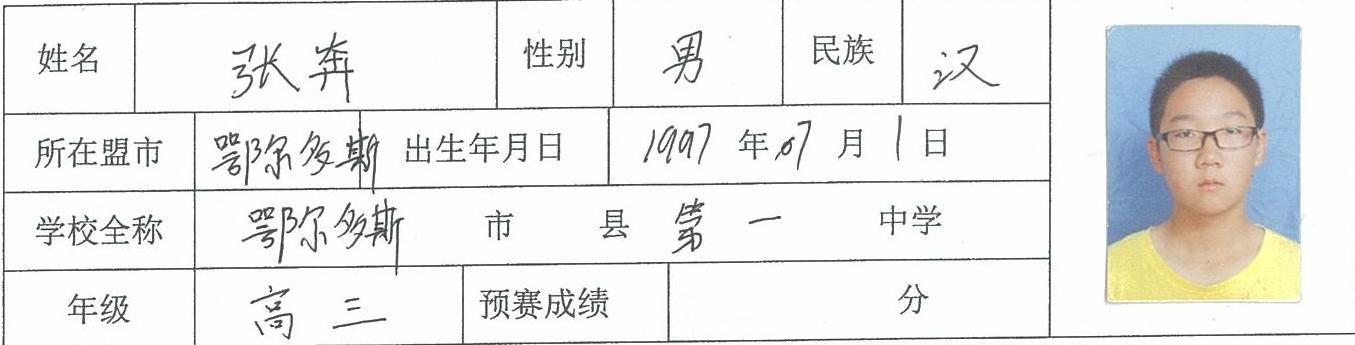 姓名 张奔 性别 男 民族 汉
所在盟市 鄂尔多斯 出生年月日 1997 年 07 月 1 日
学校全称 鄂尔多斯 市 县 第一 中学
年级 高三 预赛成绩 分